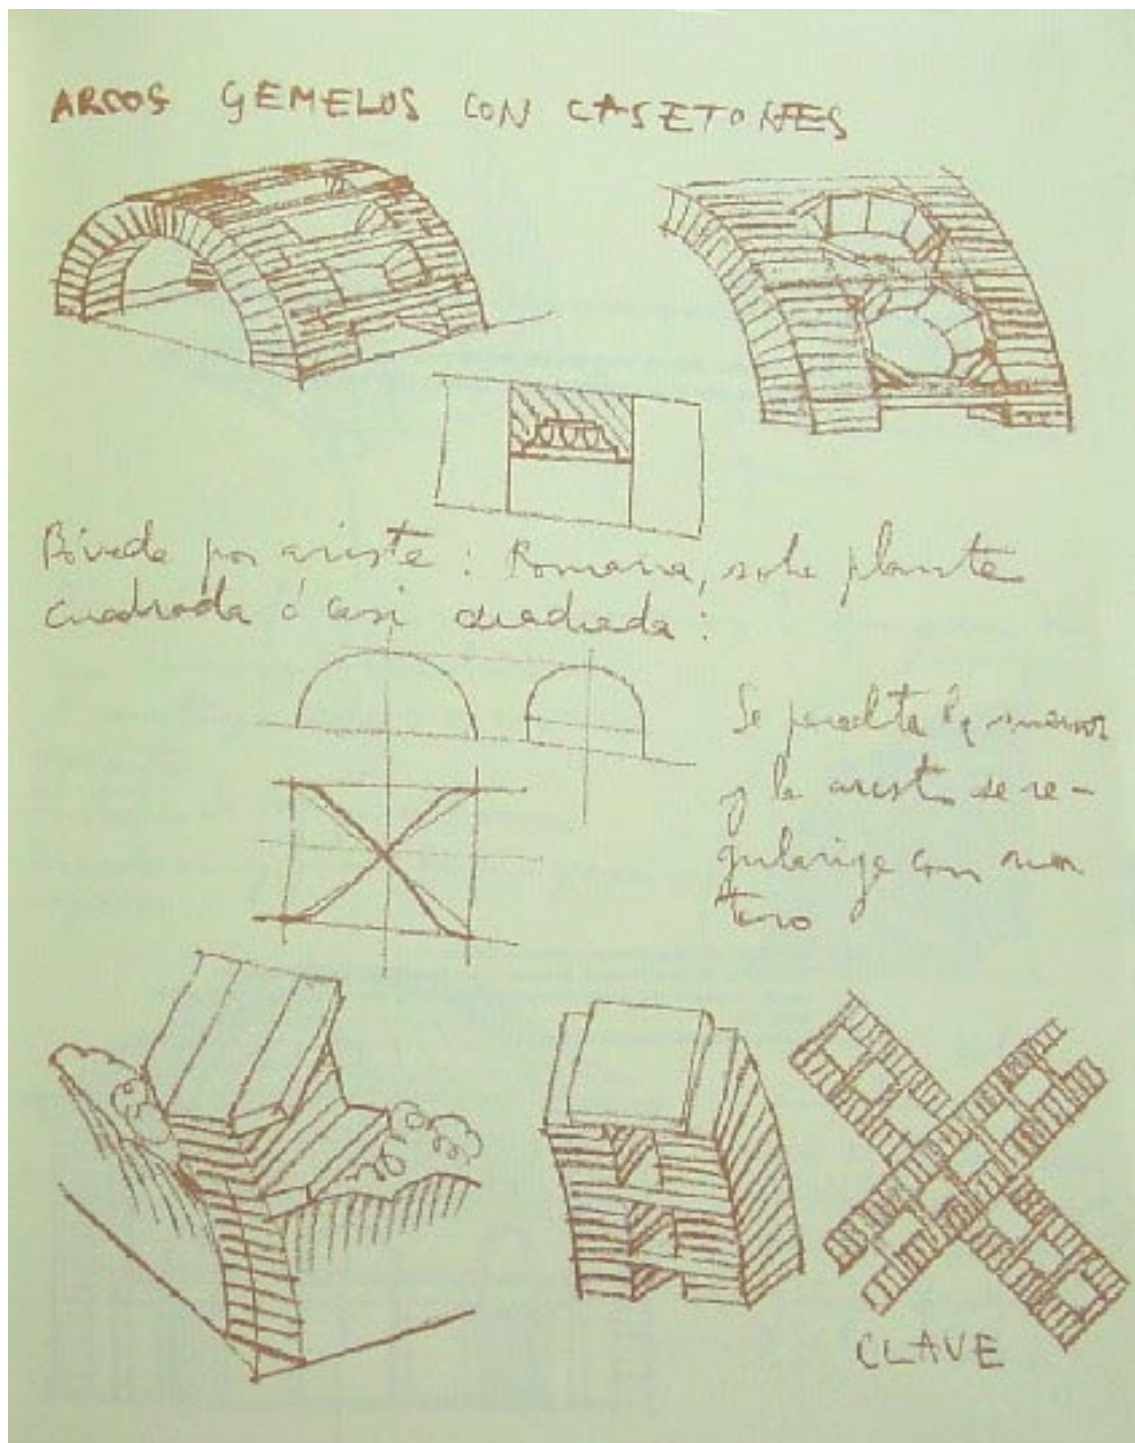 ARCOS GEMELOS CON CASETONES
Bóveda por arista : Romana, sobre planta
cuadrada ó casi cuadrada :
Se peralta la menor
y la arista se re-
gulariza con mor
tero
CLAVE